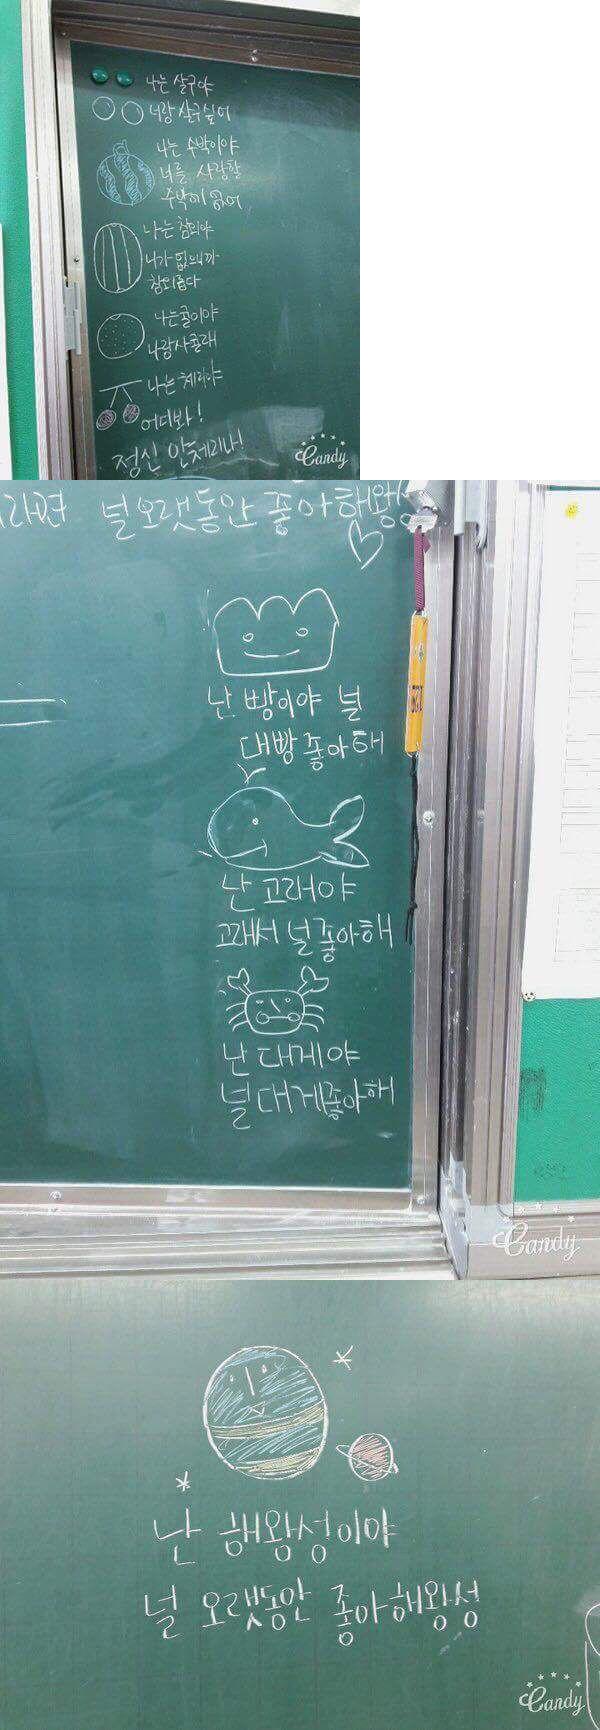 나는 살구야
너랑 살구싶어
나는 수박이야
너를 사랑할
수박에 없어
나는 참외야
니가 없으니까
참외롭다
나는 귤이야
나랑사귤래
나는 체리야
어디봐!
정신 안체리나!
Candy
라면 널 오랫동안 좋아해왕성
난 빵이야 널
대빵좋아해
난 고래야
고래서 널좋아해
난 대게야
널대게좋아해
Candy
난 해왕성이야
널 오랫동안 좋아해왕성
Candy